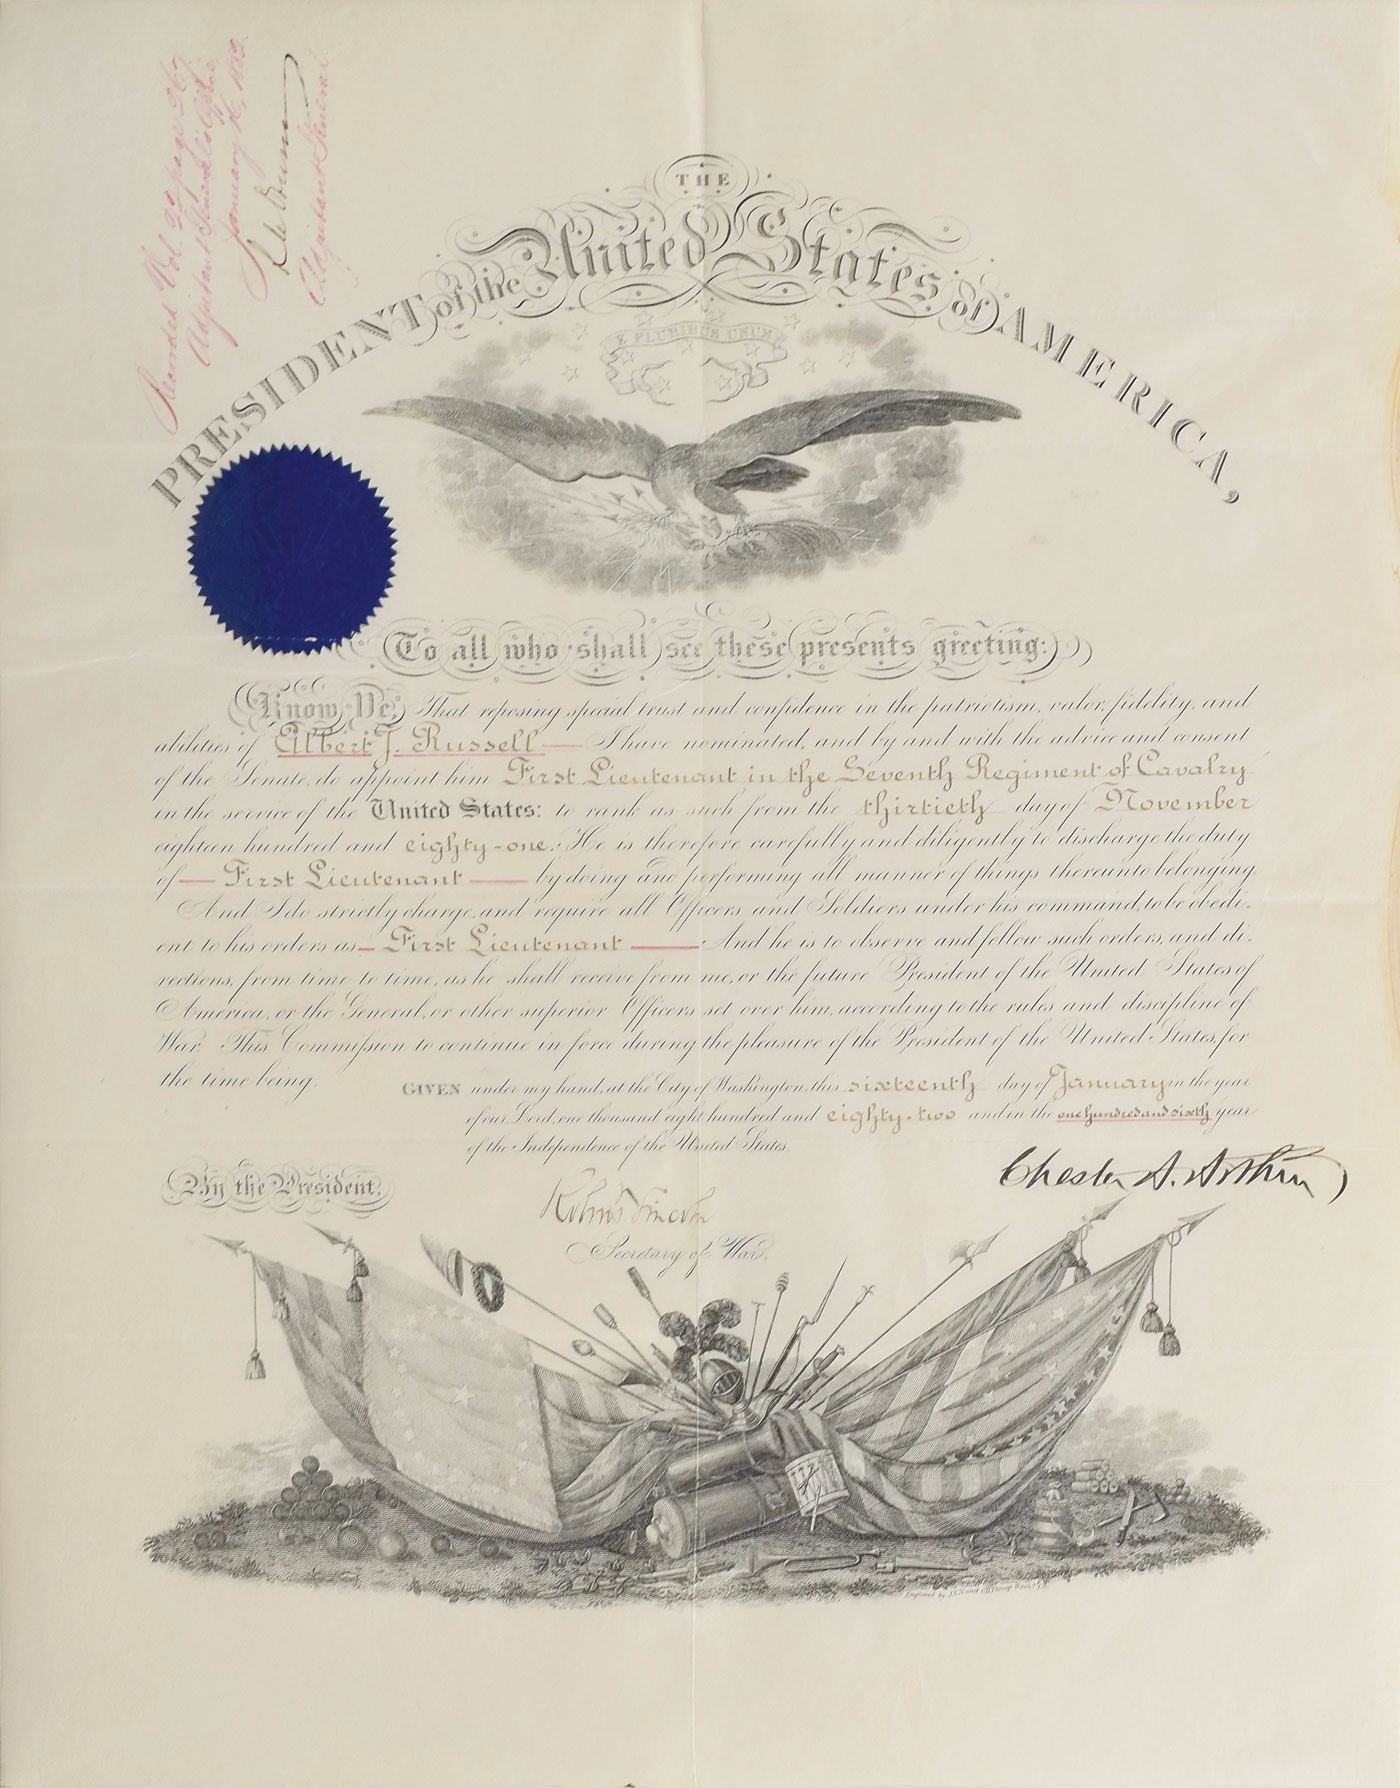 Recorded Vol. 20 page 267.
Adjutant General's Office
January 16, 1882.
R. C. Drum
Adjutant General
THE
PRESIDENT of the United States of AMERICA,
E PLURIBUS UNUM
To all who shall see these presents greeting:
Know Ye, That reposing special trust and confidence in the patriotism, valor, fidelity, and
abilities of Albert J. Russell — I have nominated, and by and with the advice and consent
of the Senate, do appoint him First Lieutenant in the Seventh Regiment of Cavalry
in the service of the United States: to rank as such from the thirtieth day of November
eighteen hundred and eighty-one. He is therefore carefully and diligently to discharge the duty
of — First Lieutenant — by doing and performing all manner of things thereunto belonging.
And I do strictly charge, and require all Officers and Soldiers under his command, to be obedi-
ent to his orders as — First Lieutenant — And he is to observe and follow such orders, and di-
rections, from time to time, as he shall receive from me, or the future President of the United States of
America, or the General, or other superior Officers set over him, according to the rules and discipline of
War. This Commission to continue in force during the pleasure of the President of the United States, for
the time being.
GIVEN under my hand, at the City of Washington, this sixteenth day of January in the year
of our Lord, one thousand eight hundred and eighty-two and in the one hundred and sixth year
of the Independence of the United States.
Chester A. Arthur
By the President:
Robert T. Lincoln
Secretary of War.